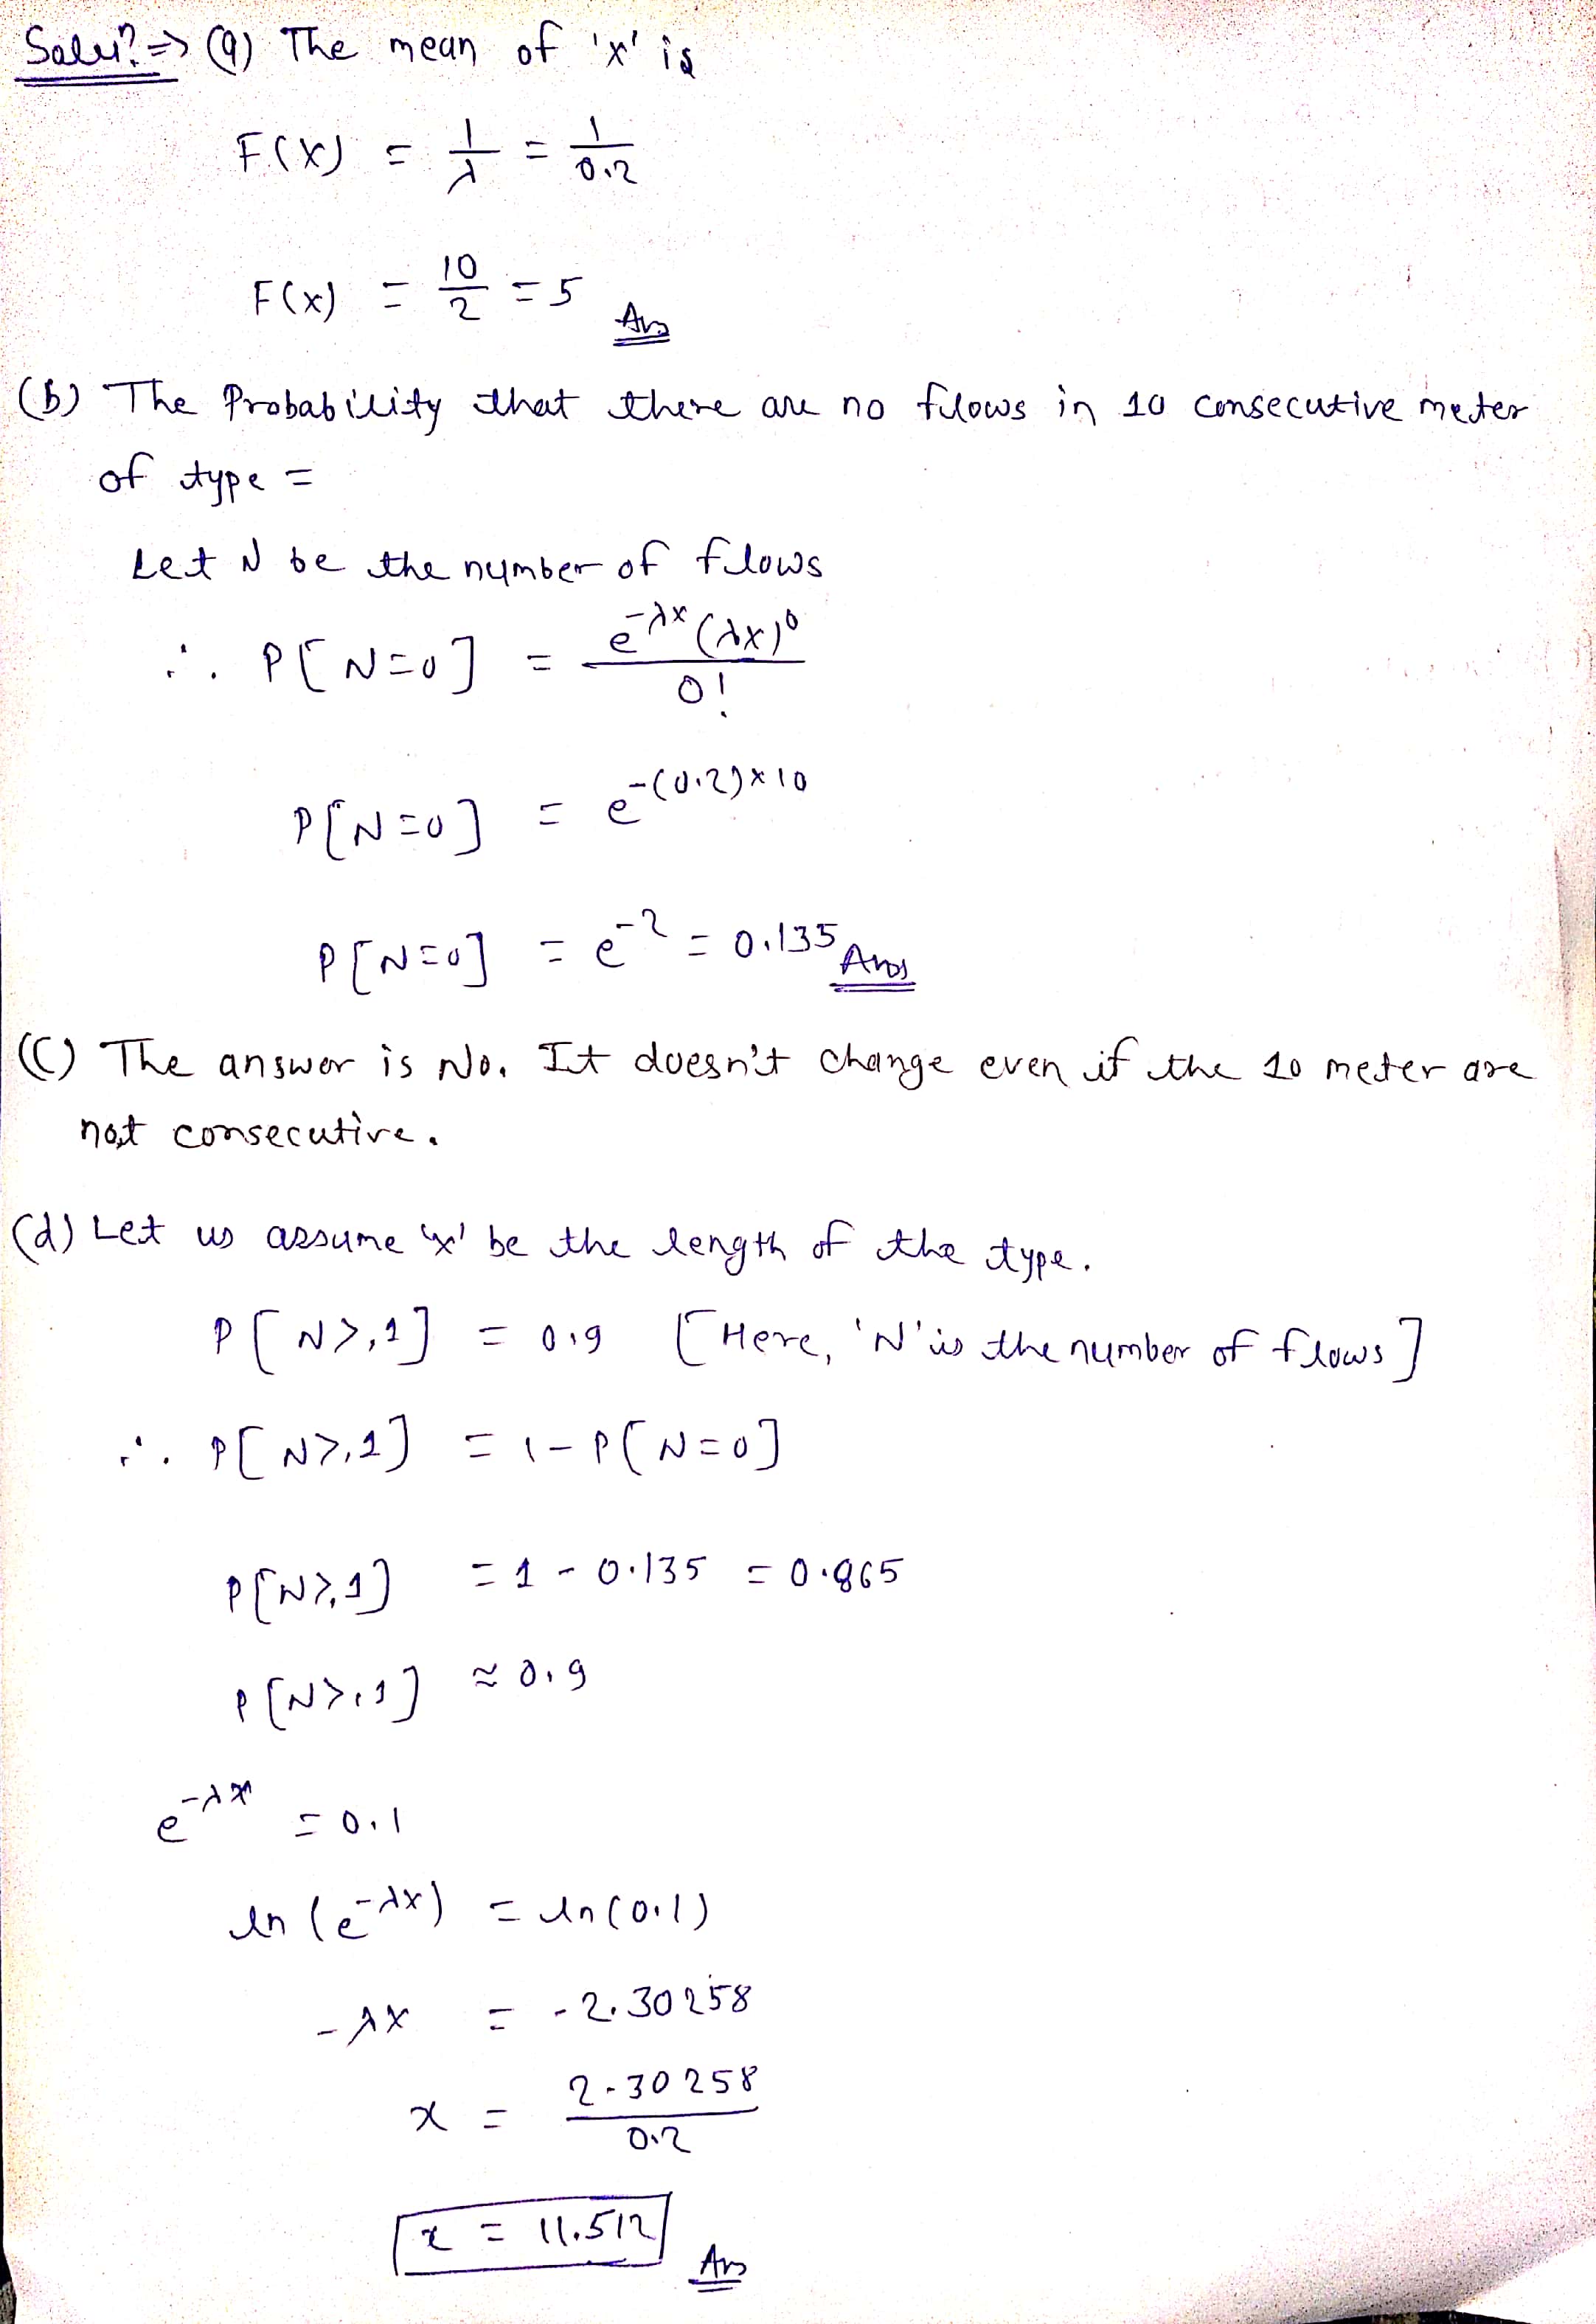 Solun? => (a) The mean of 'x' is
F(X) = 1/λ = 1/0.2
F(x) = 10/2 = 5 Ans
(b) The Probability that there are no flows in 10 consecutive meter
of type =
Let N be the number of flows
∴ P[N=0] = e^-λx (λx)^0 / 0!
P[N=0] = e^-(0.2)×10
P[N=0] = e^-2 = 0.135 Ans
(C) The answer is No. It doesn't change even if the 10 meter are
not consecutive.
(d) Let us assume 'x' be the length of the type.
P[N≥1] = 0.9 [Here, 'N' is the number of flows]
∴ P[N≥1] = 1 - P[N=0]
P[N≥1] = 1 - 0.135 = 0.865
P[N≥1] ≈ 0.9
e^-λx = 0.1
ln(e^-λx) = ln(0.1)
-λx = -2.30258
x = 2.30258 / 0.2
x = 11.512 Ans